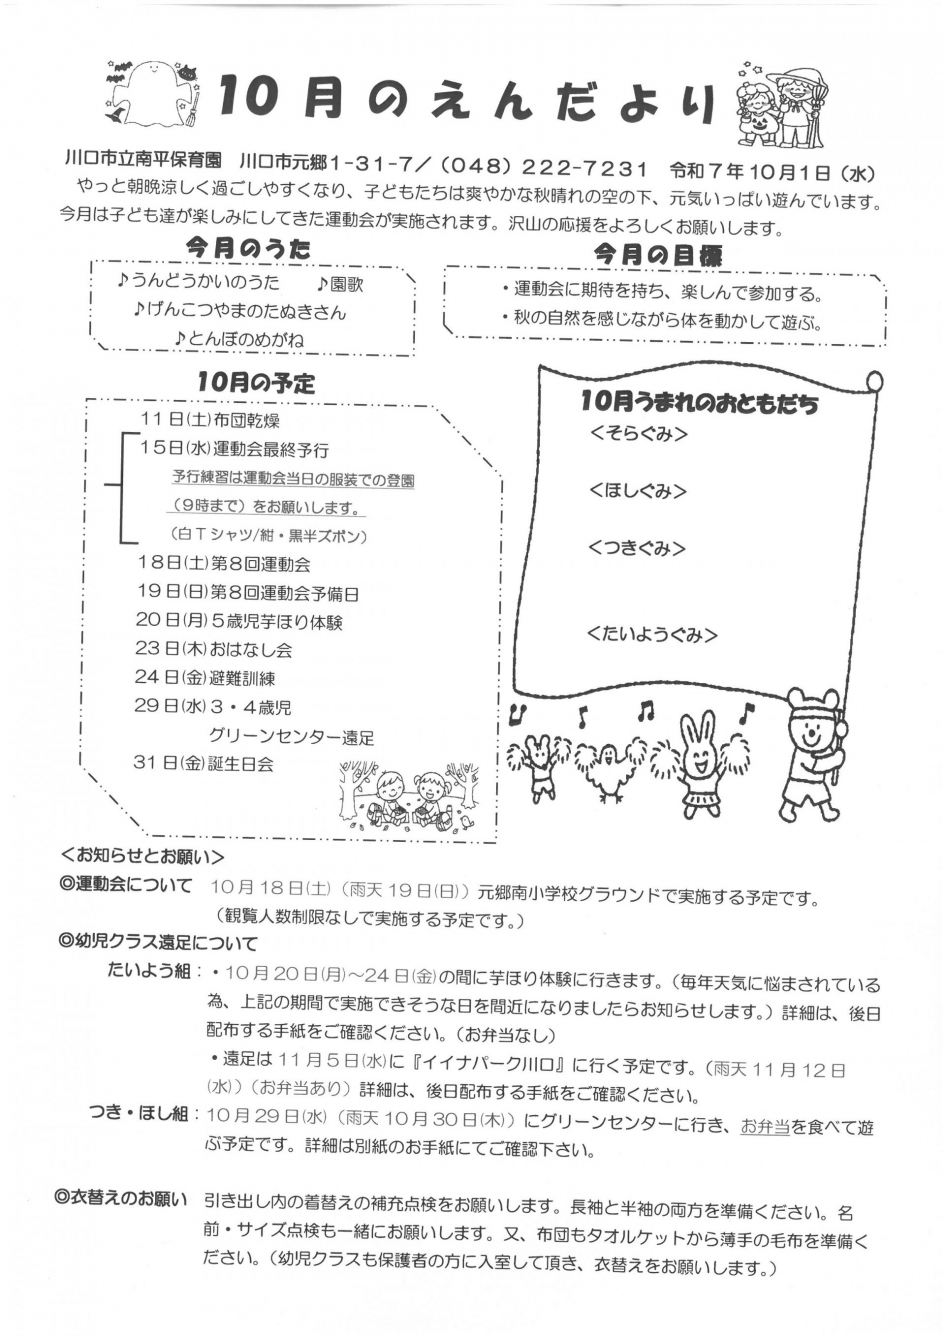 10月のえんだより
川口市立南平保育園　川口市元郷1-31-7／（048）222-7231　令和7年10月1日（水）
やっと朝晩涼しく過ごしやすくなり、子どもたちは爽やかな秋晴れの空の下、元気いっぱい遊んでいます。
今月は子ども達が楽しみにしてきた運動会が実施されます。沢山の応援をよろしくお願いします。
今月のうた
♪うんどうかいのうた　♪園歌
♪げんこつやまのたぬきさん
♪とんぼのめがね
今月の目標
・運動会に期待を持ち、楽しんで参加する。
・秋の自然を感じながら体を動かして遊ぶ。
10月の予定
11日(土)布団乾燥
15日(水)運動会最終予行
予行練習は運動会当日の服装での登園
（9時まで）をお願いします。
（白Tシャツ/紺・黒半ズボン）
18日(土)第8回運動会
19日(日)第8回運動会予備日
20日(月)5歳児芋ほり体験
23日(木)おはなし会
24日(金)避難訓練
29日(水)3・4歳児
グリーンセンター遠足
31日(金)誕生日会
10月うまれのおともだち
＜そらぐみ＞
＜ほしぐみ＞
＜つきぐみ＞
＜たいようぐみ＞
＜お知らせとお願い＞
◎運動会について　10月18日(土)（雨天19日(日)）元郷南小学校グラウンドで実施する予定です。
（観覧人数制限なしで実施する予定です。）
◎幼児クラス遠足について
たいよう組：・10月20日(月)～24日(金)の間に芋ほり体験に行きます。（毎年天気に悩まされている
為、上記の期間で実施できそうな日を間近になりましたらお知らせします。）詳細は、後日
配布する手紙をご確認ください。（お弁当なし）
・遠足は11月5日(水)に『イイナパーク川口』に行く予定です。（雨天11月12日
(水)）（お弁当あり）詳細は、後日配布する手紙をご確認ください。
つき・ほし組：10月29日(水)（雨天10月30日(木)）にグリーンセンターに行き、お弁当を食べて遊
ぶ予定です。詳細は別紙のお手紙にてご確認下さい。
◎衣替えのお願い　引き出し内の着替えの補充点検をお願いします。長袖と半袖の両方を準備ください。名
前・サイズ点検も一緒にお願いします。又、布団もタオルケットから薄手の毛布を準備く
ださい。（幼児クラスも保護者の方に入室して頂き、衣替えをお願いします。）